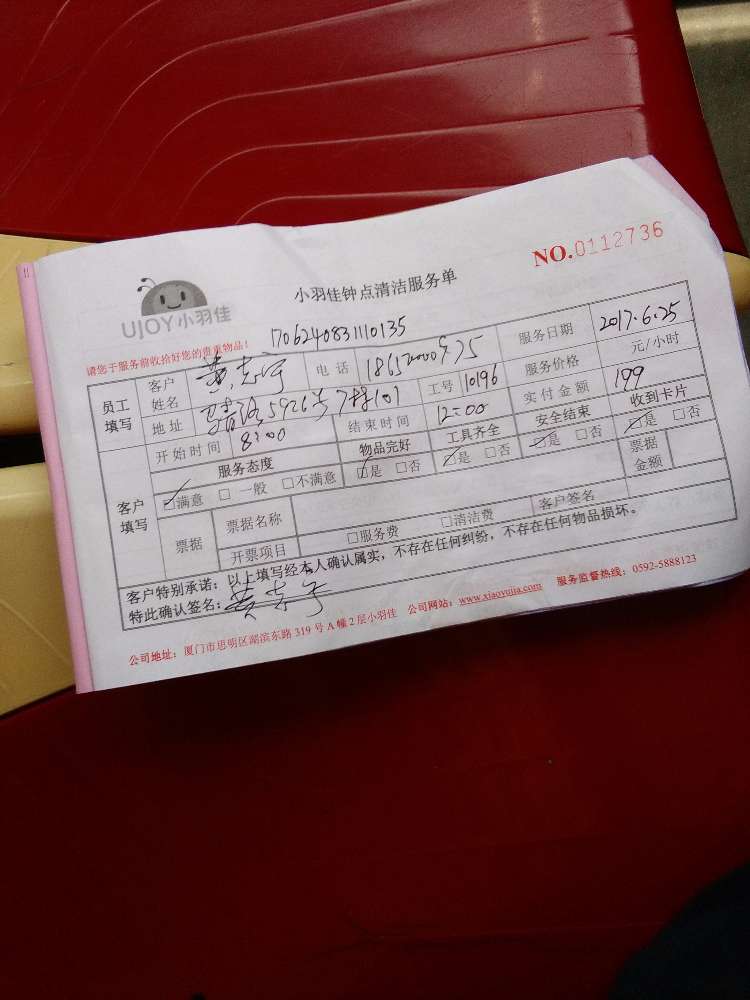 NO.0112736
小羽佳钟点清洁服务单
UJOY小羽佳
请您于服务前收拾好您的贵重物品!
170624083110135
员工填写 客户姓名 黄志宇 电话 服务日期 2017.6.25
地址 5926号 工号 10196 服务价格 元/小时
开始时间 8:00 结束时间 12:00 实付金额 199
客户填写 服务态度 物品完好 工具齐全 安全结束 收到卡片
☑满意 □一般 □不满意 ☑是 □否 ☑是 □否 ☑是 □否 ☑是 □否
票据 票据名称 票据金额
开票项目 □服务费 □清洁费 客户签名
客户特别承诺:以上填写经本人确认属实,不存在任何纠纷,不存在任何物品损坏。
特此确认签名:黄志宇
公司地址:厦门市思明区湖滨东路319号A幢2层小羽佳 公司网站:www.xiaoyujia.com 服务监督热线:0592-5888123